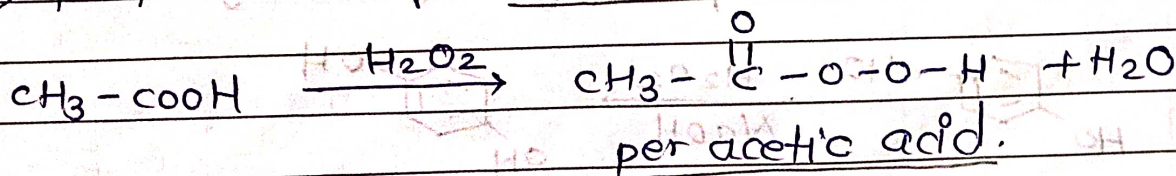 O
||
CH3 - COOH H2O2 → CH3 - C - O - O - H + H2O
per acetic acid.